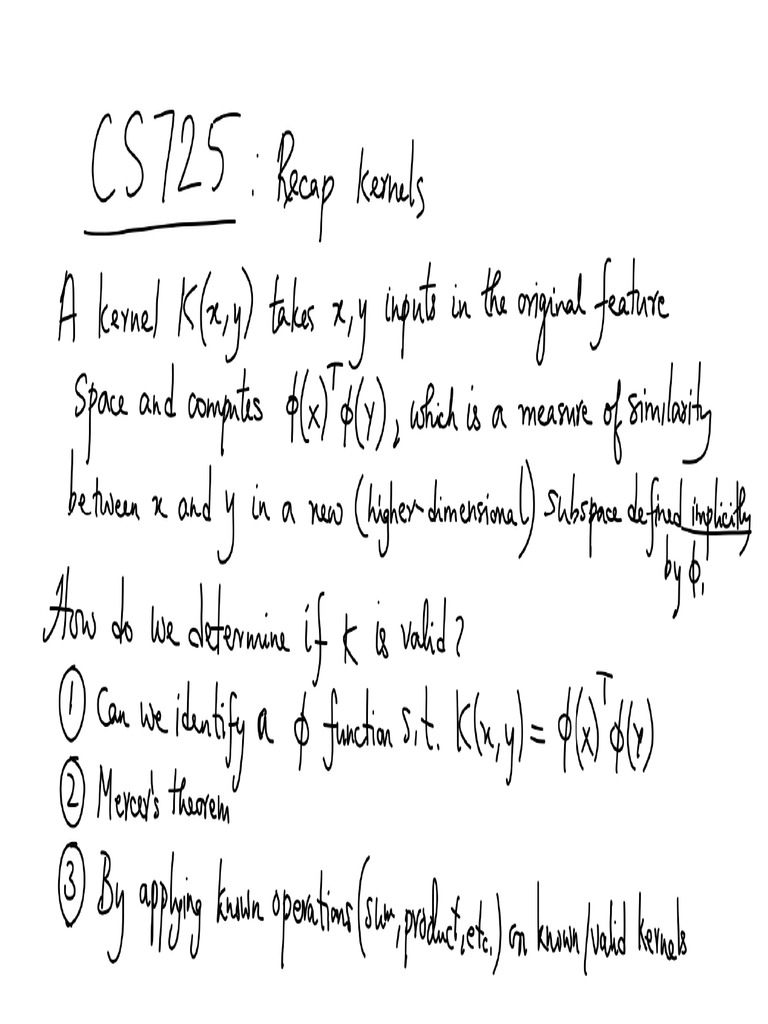 CS725: Recap kernels
A kernel K(x,y) takes x,y inputs in the original feature
space and computes ϕ(x)ᵀϕ(y), which is a measure of similarity
between x and y in a new (higher-dimensional) subspace defined implicitly
by ϕ.
How do we determine if K is valid?
① Can we identify a ϕ function s.t. K(x,y) = ϕ(x)ᵀϕ(y)
② Mercer's theorem
③ By applying known operations (sum, product, etc.) on known/valid kernels